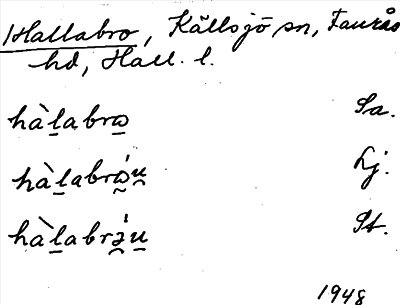 Hallabro, Källsjö sn, Faurås
hd, Hall. l.
hàl̲abrω̲ Sa.
hàl̲abrώ̰ṵ Lj.
hàl̲abrə̰́ṵ St.
1948